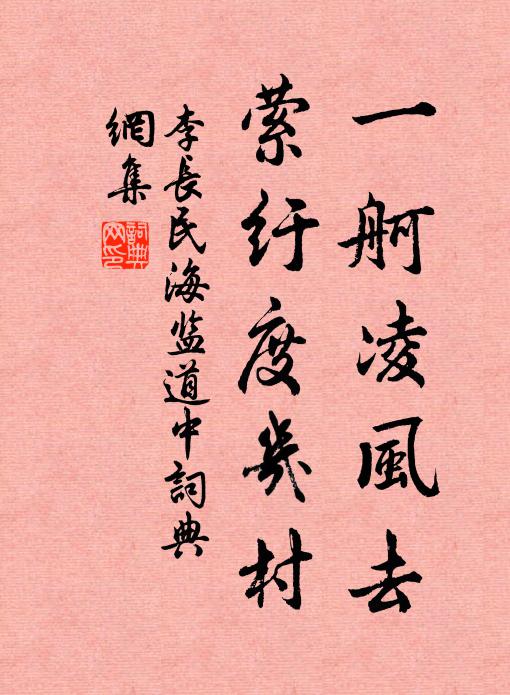 一舸凌風去
縈纡度幾村
李長民海监道中詞典
網集
詞典網印